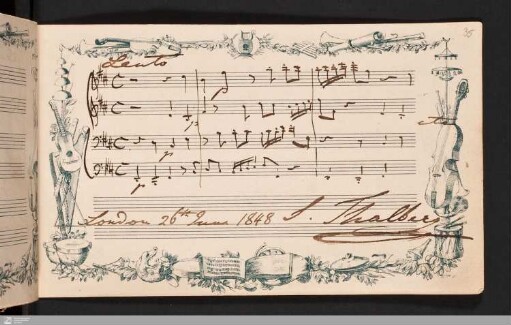 Lento
London 26th June 1848 S. Thalberg